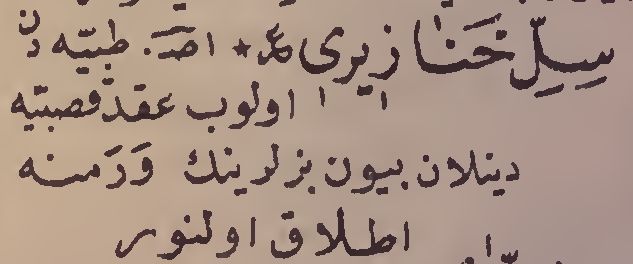 سِلِّ خَنَازيرى ع★ اصـ. طبيّه دن
اولوب عقدۀ قصبيّه
دينلان بيون بزلرينك وَرَمنه
اطلاق اولنور